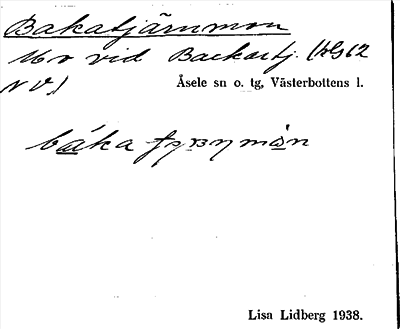 Bakatjärnmon
Mo vid Backastj. (kbl 62
N V.)
Åsele sn o. tg, Västerbottens l.
Lisa Lidberg 1938.